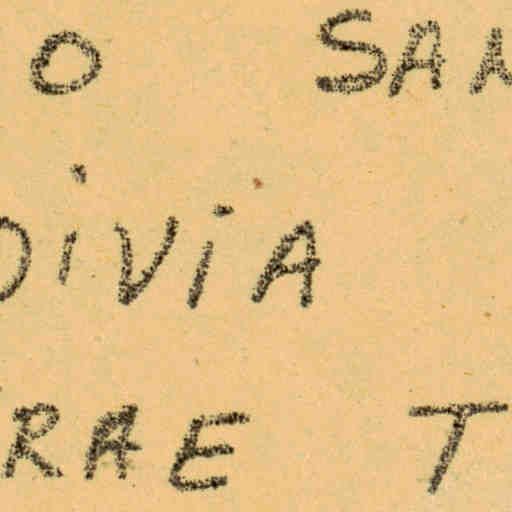 O SAN
DIVIA
RAE T